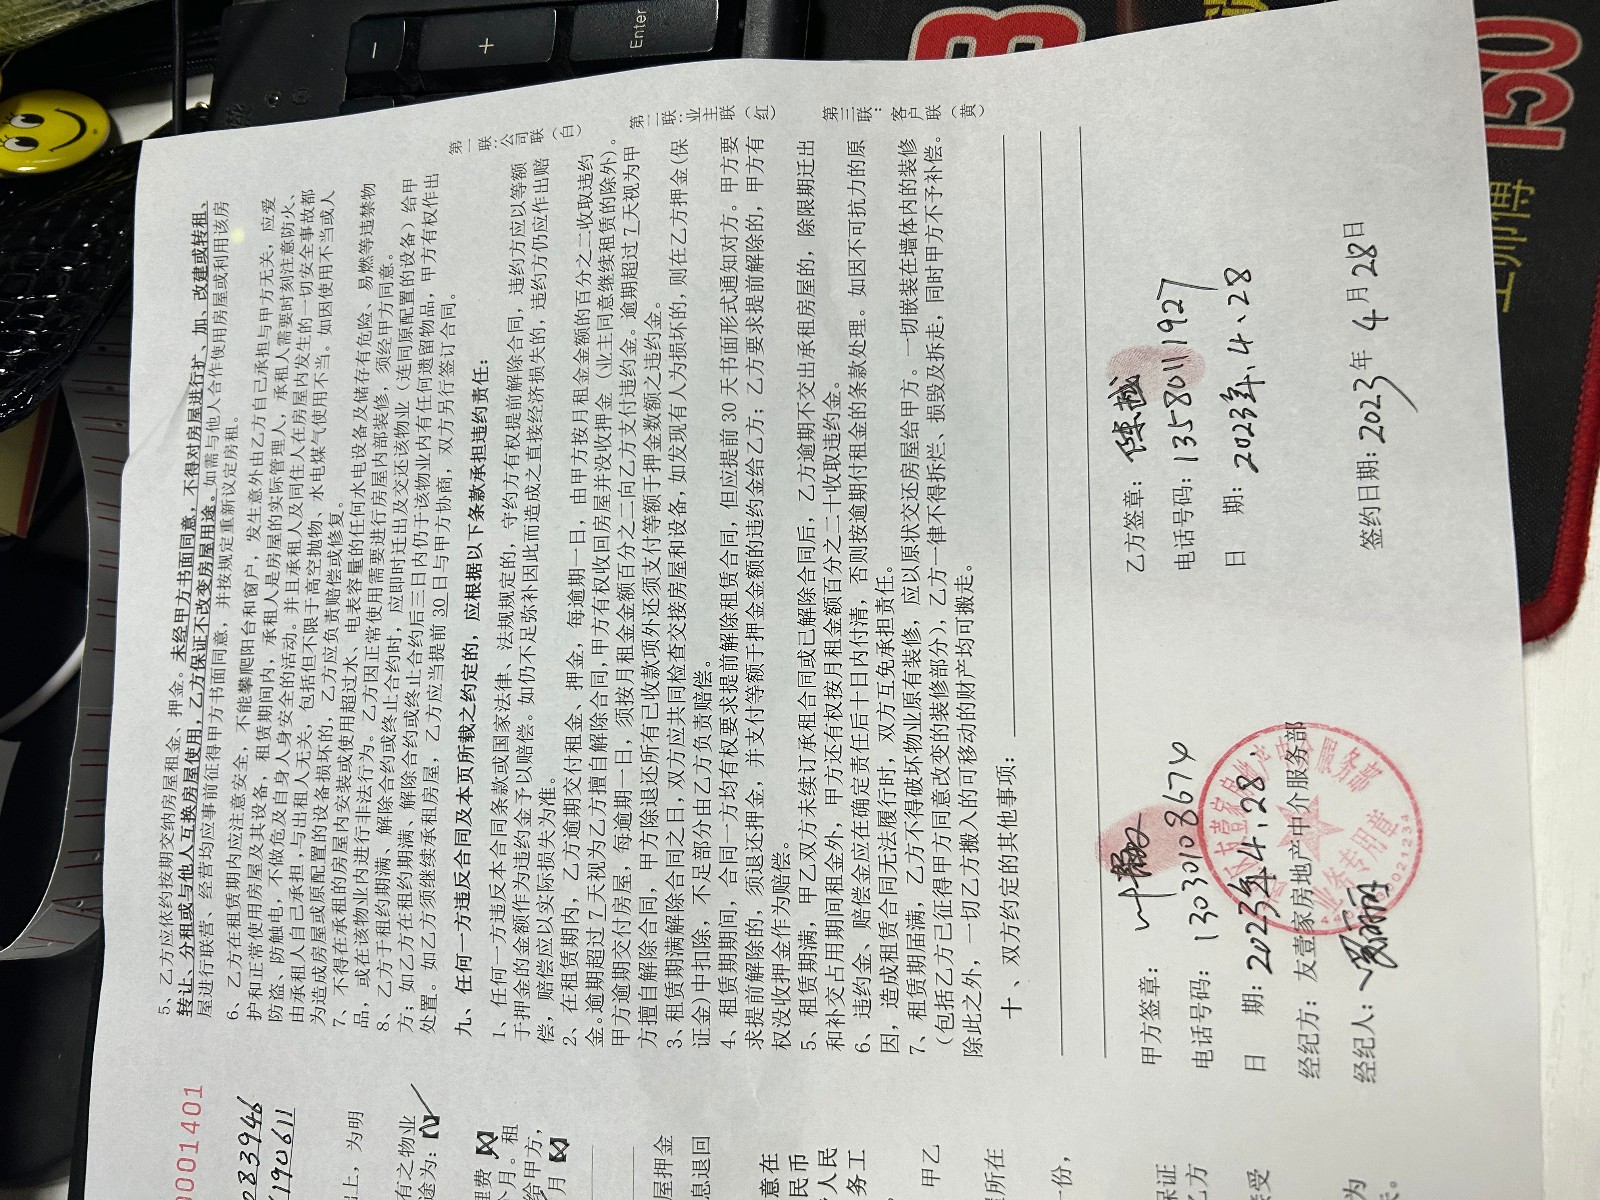 5、乙方应依约按期交纳房屋租金、押金。未经甲方书面同意，不得对房屋进行扩、加、改建或转租、
转让、分租或与他人互换房屋使用，乙方保证不改变房屋用途。如需与他人合作使用房屋或利用该房
屋进行联营、经营均应事前征得甲方书面同意，并按规定重新议定房租。
6、乙方在租赁期内应注意安全，不能攀爬阳台和窗户，发生意外由乙方自己承担与甲方无关，应爱
护和正常使用房屋及其设备，租赁期间内，承租人是房屋的实际管理人，承租人需要时刻注意防火、
防盗、防触电，不做危及自身人身安全的活动。并且承租人及同住人在房屋内发生的一切安全事故都
由承租人自己承担，与出租人无关，包括但不限于高空抛物、水电煤气使用不当。如因使用不当或人
为造成房屋或原配置的设备损坏的，乙方应负责赔偿或修复。
7、不得在承租的房屋内安装或使用超过水、电表容量的任何水电设备及储存有危险、易燃等违禁物
品，或在该物业内进行非法行为。乙方因正常使用需要进行房屋内部装修，须经甲方同意。
8、乙方于租约期满、解除合约或终止合约时，应即时迁出及交还该物业（连同原配置的设备）给甲
方；如乙方在租约期满、解除合约或终止合约后三日内仍于该物业内有任何遗留物品，甲方有权作出
处置。如乙方须继续承租房屋，乙方应当提前 30 日与甲方协商，双方另行签订合同。
九、任何一方违反合同及本页所载之约定的，应根据以下条款承担违约责任：
1、任何一方违反本合同条款或国家法律、法规规定的，守约方有权提前解除合同，违约方应以等额
于押金的金额作为违约金予以赔偿。如仍不足弥补因此而造成之直接经济损失的，违约方仍应作出赔
偿，赔偿应以实际损失为准。
2、在租赁期内，乙方逾期交付租金、押金，每逾期一日，由甲方按月租金金额的百分之二收取违约
金，逾期超过 7 天视为乙方擅自解除合同，甲方有权收回房屋并没收押金（业主同意继续租赁的除外）。
甲方逾期交付房屋，每逾期一日，须按月租金金额百分之二向乙方支付违约金。逾期超过 7 天视为甲
方擅自解除合同，甲方除退还所有已收款项外还须支付等额于押金数额之违约金。
3、租赁期满解除合同之日，双方应共同检查交接房屋和设备，如发现有人为损坏的，则在乙方押金(保
证金)中扣除，不足部分由乙方负责赔偿。
4、租赁期期间，合同一方均有权要求提前解除租赁合同，但应提前 30 天书面形式通知对方。甲方要
求提前解除的，须退还押金，并支付等额于押金金额的违约金给乙方；乙方要求提前解除的，甲方有
权没收押金作为赔偿。
5、租赁期满，甲乙双方未续订承租合同或已解除合同后，乙方逾期不交出承租房屋的，除限期迁出
和补交占用期间租金外，甲方还有权按月租金额百分之二十收取违约金。
6、违约金、赔偿金应在确定责任后十日内付清，否则按逾期付租金的条款处理。如因不可抗力的原
因，造成租赁合同无法履行时，双方互免承担责任。
7、租赁期届满，乙方不得破坏物业原有装修，应以原状交还房屋给甲方。一切嵌装在墙体内的装修
（包括乙方已征得甲方同意改变的装修部分），乙方一律不得拆烂、损毁及拆走，同时甲方不予补偿。
除此之外，一切乙方搬入的可移动的财产均可搬走。
十、双方约定的其他事项：
甲方签章：
电话号码：13030108674
日 期：2023年4.28
经纪方：友壹家房地产中介服务部
经纪人：
乙方签章：陈越
电话号码：13580111927
日 期：2023年.4.28
签约日期：2023年 4月28日
第一联：公司联（白）
第二联：业主联（红）
第三联：客户联（黄）
业务专用章
0001401
0283946
190611
上，为明
有之物业
途为：
理费
个月。租
给甲方，
月
屋押金
息退回
意在
民币
人民
务工
甲乙
所在
份，
保证
乙方
接受
为
Enter
+
-